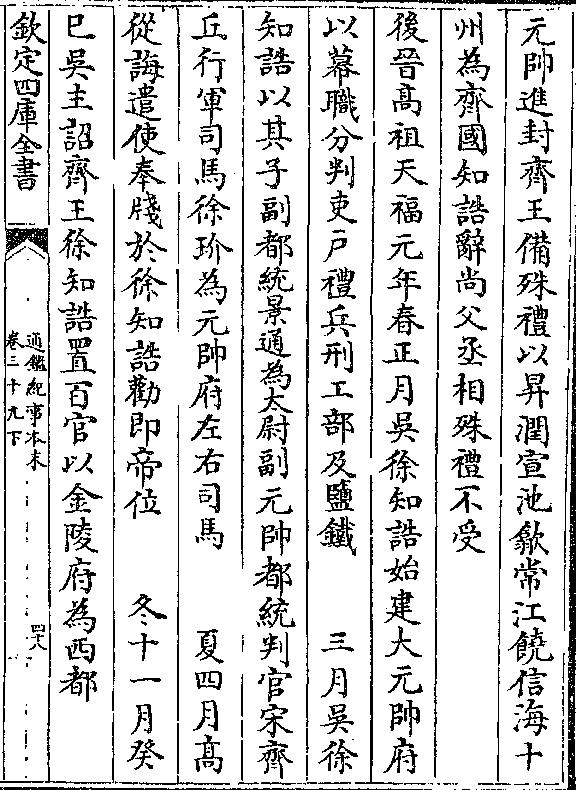 元帥進封齊王備殊禮以昇潤宣池歙常江饒信海十
州為齊國知誥辭尚父丞相殊禮不受
後晉髙祖天福元年春正月吳徐知誥始建大元帥府
以幕職分判吏户禮兵刑工部及鹽鐵　三月吳徐
知誥以其子副都統景通為太尉副元帥都統判官宋齊
丘行軍司馬徐玠為元帥府左右司馬　夏四月髙
從誨遣使奉牋於徐知誥勸即帝位　冬十一月癸
巳吳主詔齊王徐知誥置百官以金陵府為西都
欽定四庫全書
通鑑紀事本末
卷三十九下
四十八